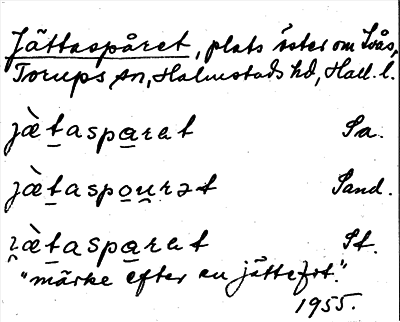 Jättaspåret, plats öster om Svås,
Torups sn, Halmstads hd, Hall. l.
jæ̀tasparat Sa.
jæ̀taspou̯rət Sand.
jæ̀tasparat St.
"märke efter en jättefot."
1955.